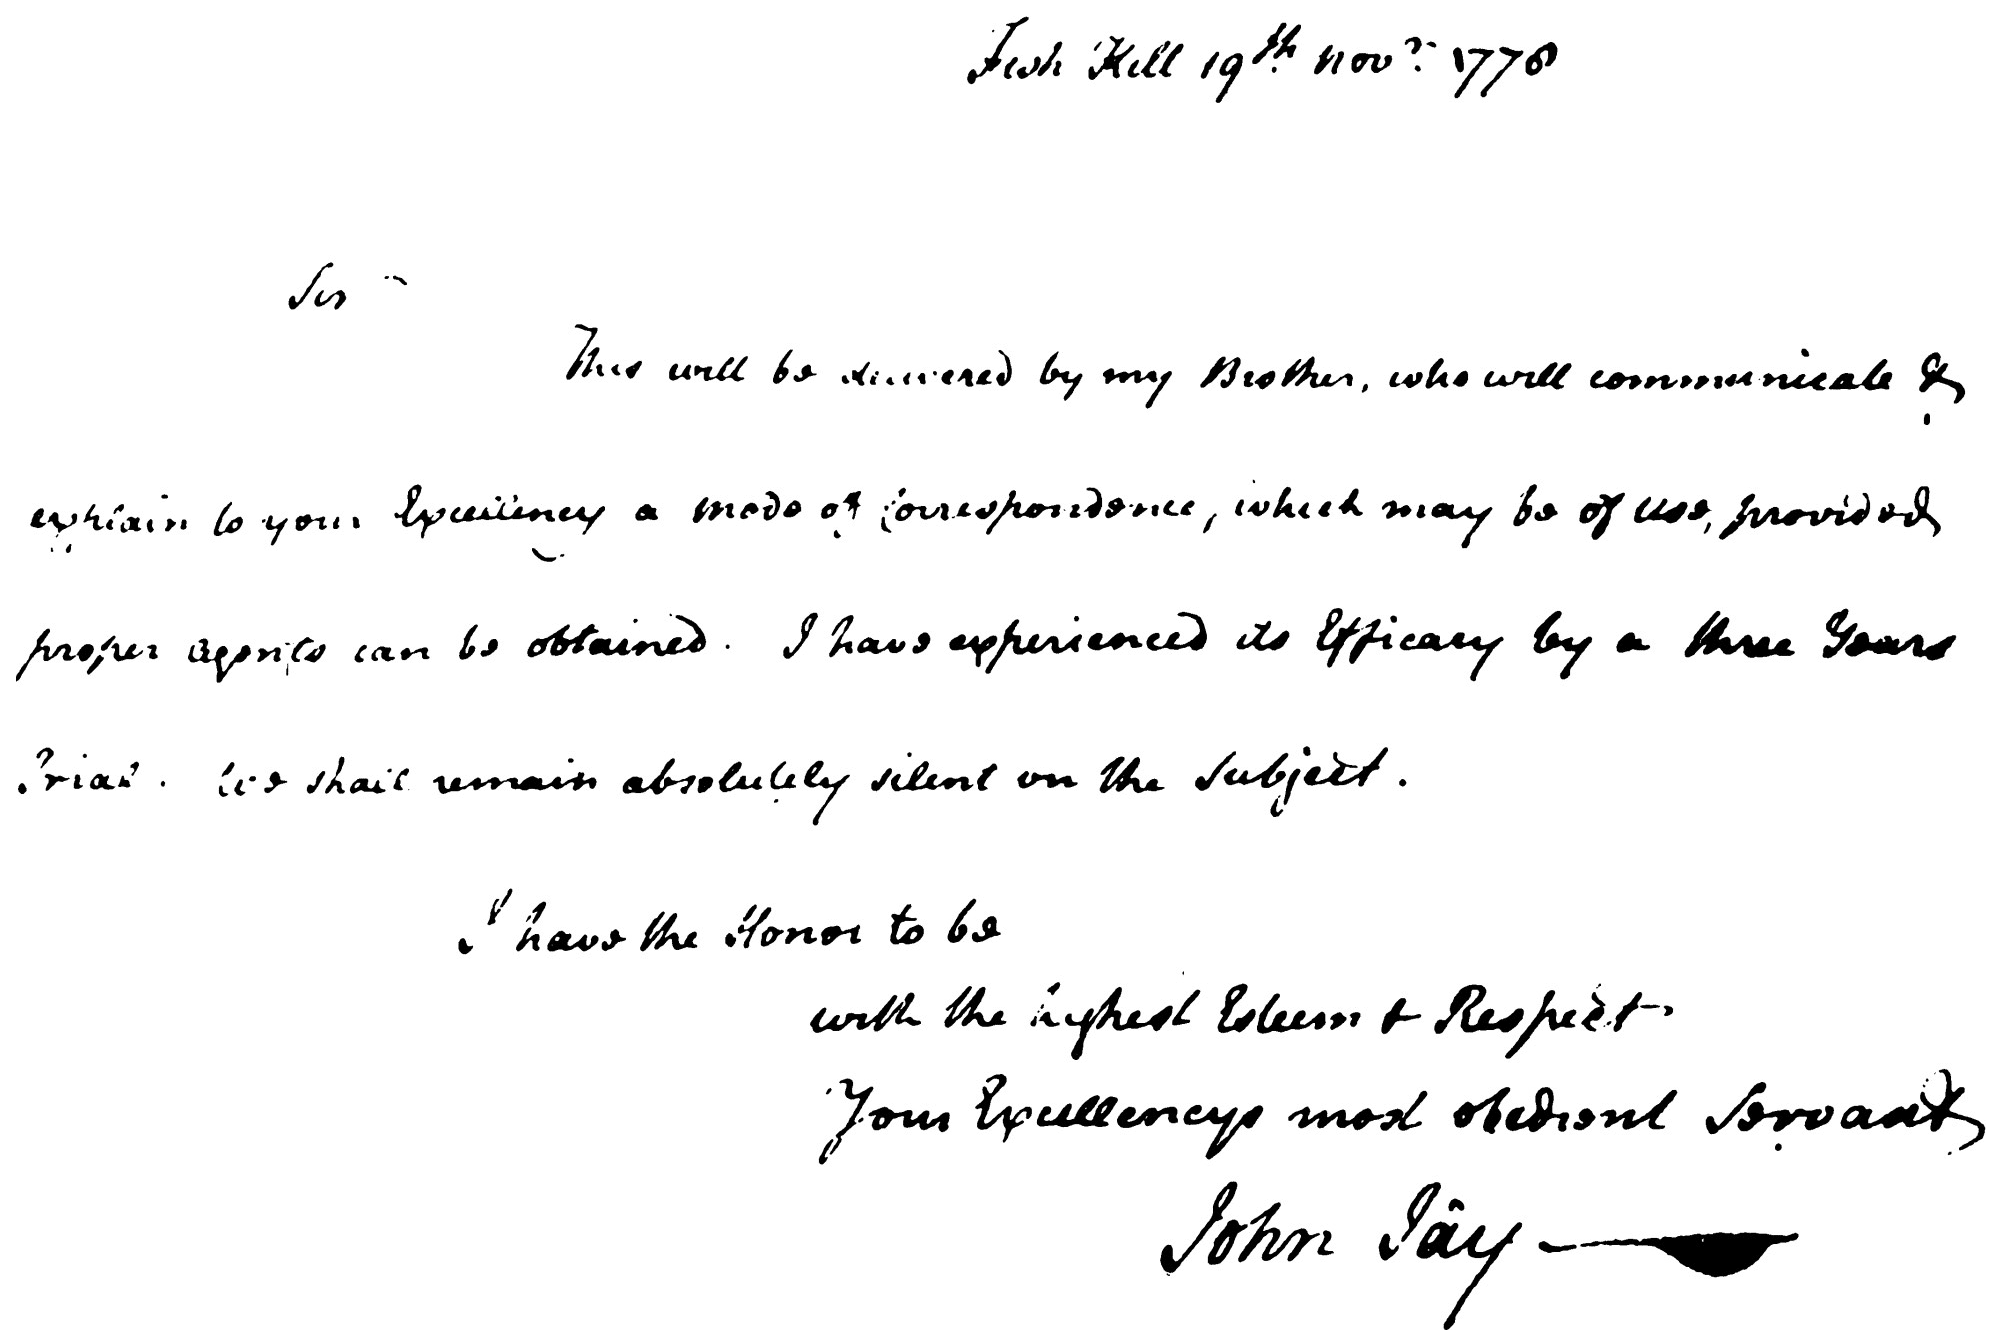 Fish Kill 19th. Novr. 1778
Sir
This will be delivered by my Brother, who will communicate &
explain to your Excellency a mode of Correspondence, which may be of use, provided
proper agents can be obtained. I have experienced its Efficacy by a three Years
Trial. We shall remain absolutely silent on the Subject.
I have the Honor to be
with the highest Esteem & Respect
Your Excellencys most obedient Servant
John Jay